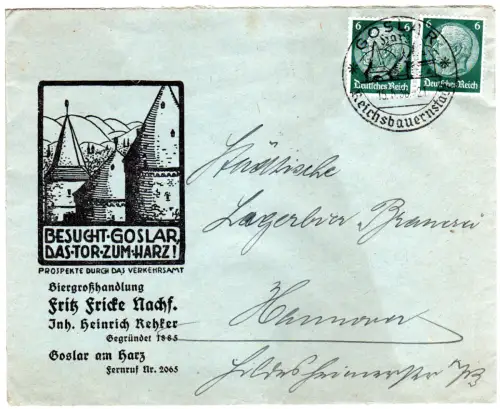 6 6 6
Deutsches Reich Deutsches Reich
GOSLAR
Reichsbauernstadt
BESUCHT·GOSLAR,
DAS·TOR·ZUM·HARZ!
PROSPEKTE DURCH DAS VERKEHRSAMT
Biergroßhandlung
Fritz Fricke Nachf.
Inh. Heinrich Rehker
Gegründet 1885
Goslar am Harz
Fernruf Nr. 2065
Städtische
Lagerbier Brauerei
Hannover
Hildesheimerstr